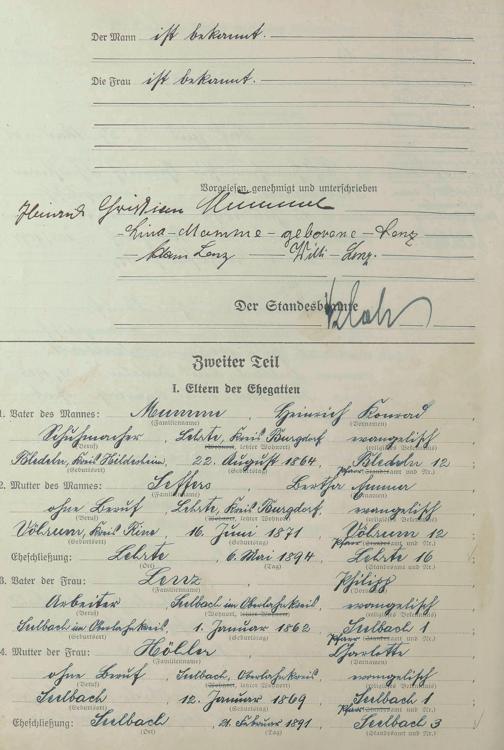 Der Mann ist bekannt.
Die Frau ist bekannt.
Vorgelesen, genehmigt und unterschrieben
Heinrich Christian Mumme
Lina Mumme geborene Lenz
Lenz Willi Lenz.
Der Standesbeamte
Zweiter Teil
I. Eltern der Ehegatten
1. Vater des Mannes: Mumme Heinrich Konrad
(Familienname) (Vornamen)
Schuhmacher, Lehrte, Kreis Burgdorf evangelisch
(Beruf) (Wohnort, letzter Wohnort) (religiöses Bekenntnis)
Bledeln, Kreis Hildesheim, 22. August 1864, Bledeln 12
(Geburtsort) (Geburtstag) Pfarr (Standesamt und Nr.)
2. Mutter des Mannes: Seffers Bertha Emma
(Familienname) (Vornamen)
ohne Beruf Lehrte, Kreis Burgdorf, evangelisch
(Beruf) (Wohnort, letzter Wohnort) (religiöses Bekenntnis)
Völksum, Kreis Peine 16. Juni 1871 Völksum 12
(Geburtsort) (Geburtstag) Pfarr (Standesamt und Nr.)
Eheschließung: Lehrte 6. Mai 1894 Lehrte 16
(Ort) (Tag) (Standesamt und Nr.)
3. Vater der Frau: Lenz Philipp
(Familienname) (Vornamen)
Arbeiter Seelbach im Oberlahnkreis evangelisch
(Beruf) (Wohnort, letzter Wohnort) (religiöses Bekenntnis)
Seelbach im Oberlahnkreis, 1. Januar 1862, Seelbach 1
(Geburtsort) (Geburtstag) Pfarr (Standesamt und Nr.)
4. Mutter der Frau: Höhler Charlotte
(Familienname) (Vornamen)
ohne Beruf Seelbach, Oberlahnkreis evangelisch
(Beruf) (Wohnort, letzter Wohnort) (religiöses Bekenntnis)
Seelbach 12. Januar 1869 Seelbach 1
(Geburtsort) (Geburtstag) Pfarr (Standesamt und Nr.)
Eheschließung: Seelbach 21. Februar 1891 Seelbach 3
(Ort) (Tag) (Standesamt und Nr.)